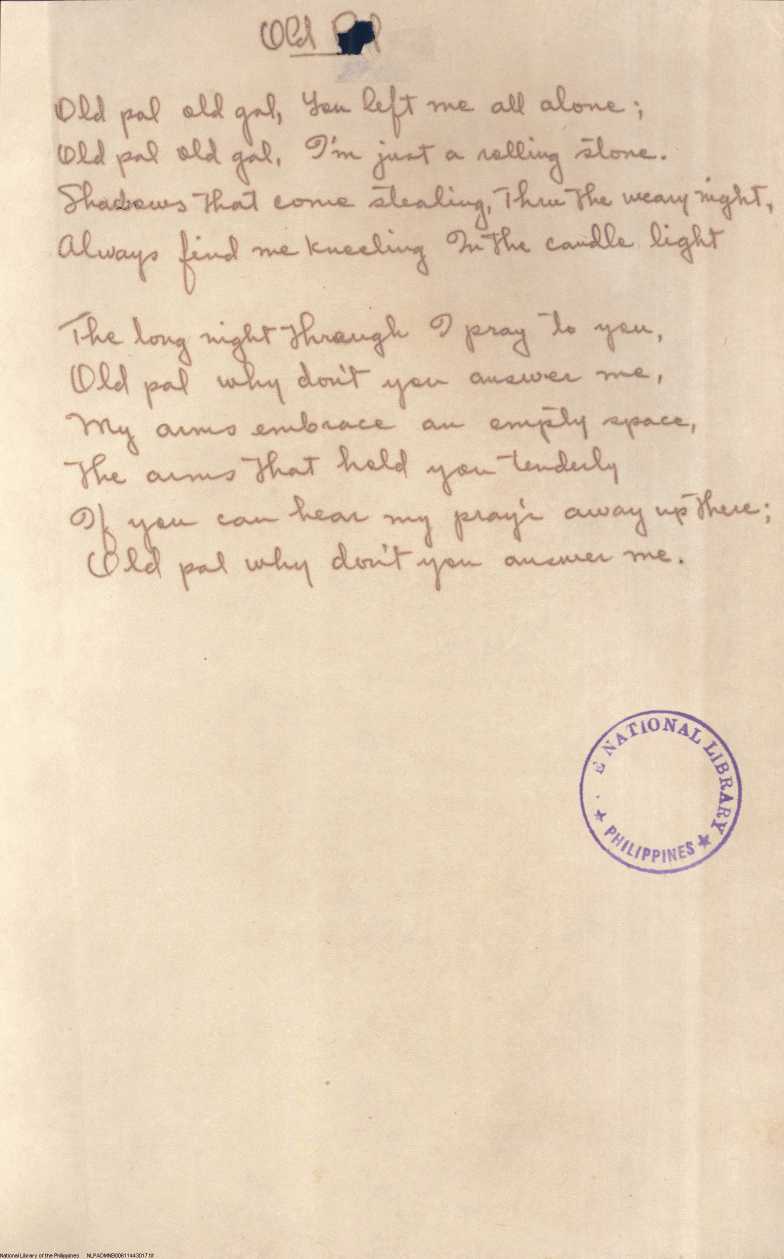 Old Pal
Old pal old gal, You left me all alone;
Old pal old gal, I'm just a rolling stone.
Shadows that come stealing, Thru the weary night,
Always find me kneeling In the candle light
The long night through I pray to you,
Old pal why don't you answer me,
My arms embrace an empty space,
The arms that held you tenderly
If you can hear my pray'r away up there;
Old pal why don't you answer me.
E NATIONAL LIBRARY
★ PHILIPPINES ★
National Library of the Philippines NLPADMNB00611443017.tif